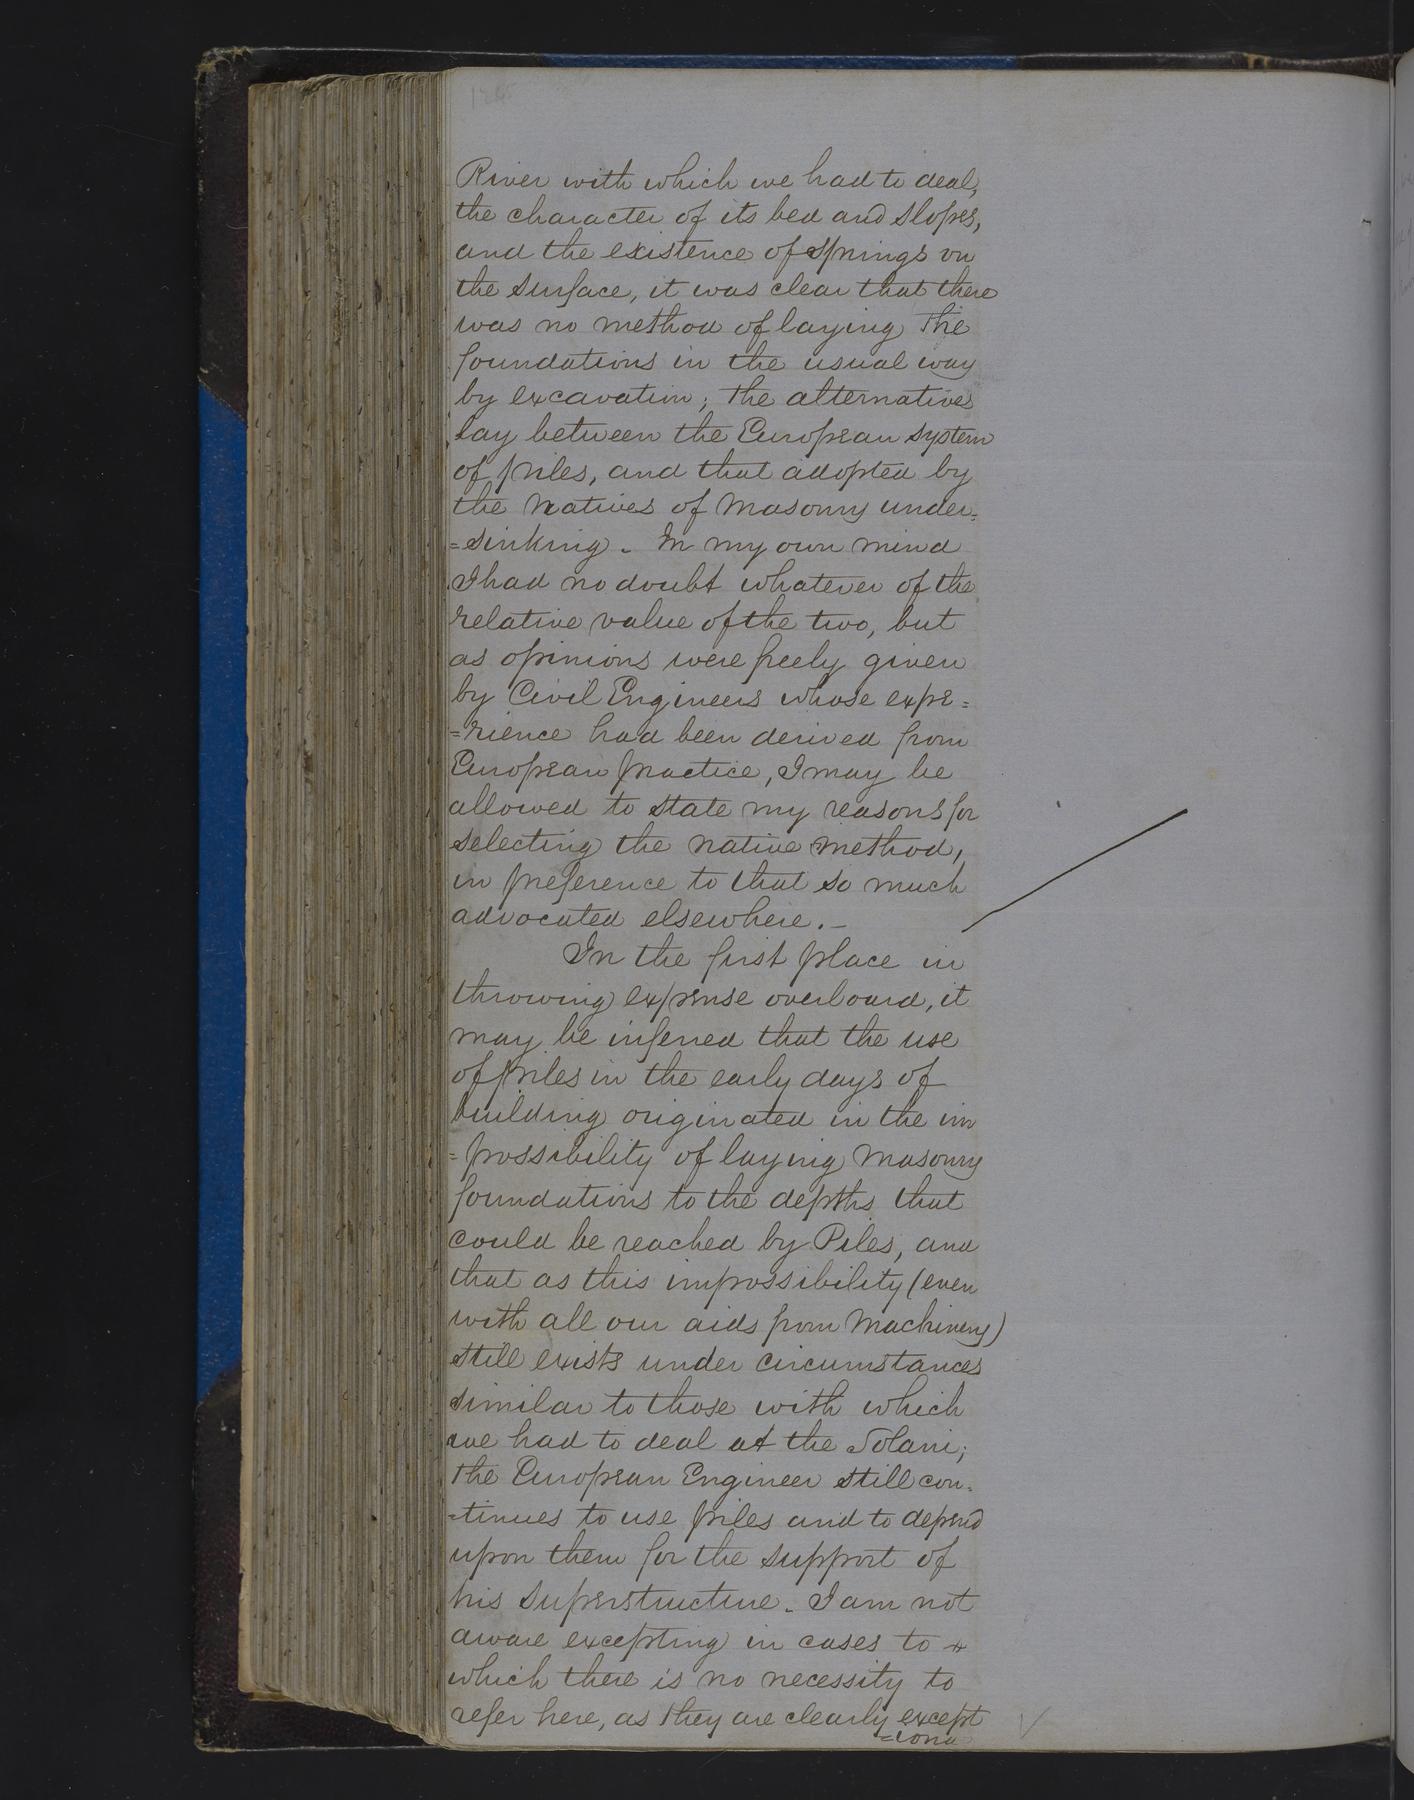 River with which we had to deal,
the character of its bed and slopes,
and the existence of springs on
the surface, it was clear that there
was no method of laying the
foundations in the usual way
by excavation; the alternatives
lay between the European system
of piles, and that adopted by
the Natives of Masonry under=
=sinking. In my own mind
I had no doubt whatever of the
relative value of the two, but
as opinions were freely given
by Civil Engineers whose expe=
=rience had been derived from
European practice, I may be
allowed to state my reasons for
selecting the native method,
in preference to that so much
advocated elsewhere.-
In the first place in
throwing expense overboard, it
may be inferred that the use
of piles in the early days of
building originated in the im
=possibility of laying Masonry
foundations to the depths that
could be reached by Piles, and
that as this impossibility (even
with all our aids from Machinery)
still exists under circumstances
similar to those with which
we had to deal at the Solani;
the European Engineer still con-
-tinues to use piles and to depend
upon them for the support of
his superstructure. I am not
aware excepting in cases to
which there is no necessity to
refer here, as they are clearly except
=iona